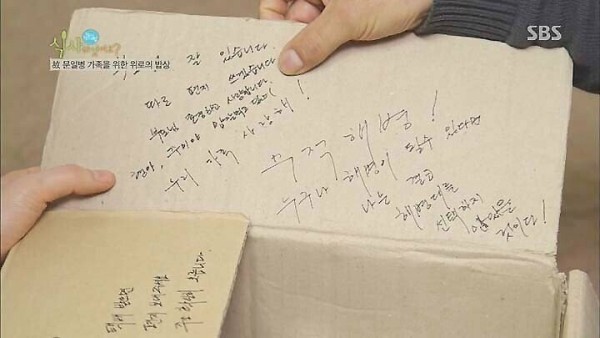 식사하셨어요?
SBS
故 문일병 가족을 위한 위로의 밥상
잘 있습니다.
따로 편지 쓰겠습니다
부모님 존경하고 사랑합니다.
우리 가족 사랑해!
무적 해병!
누구나 해병이 될수 있다면
나는 결코
해병대를
선택하지
않았을
것이다!